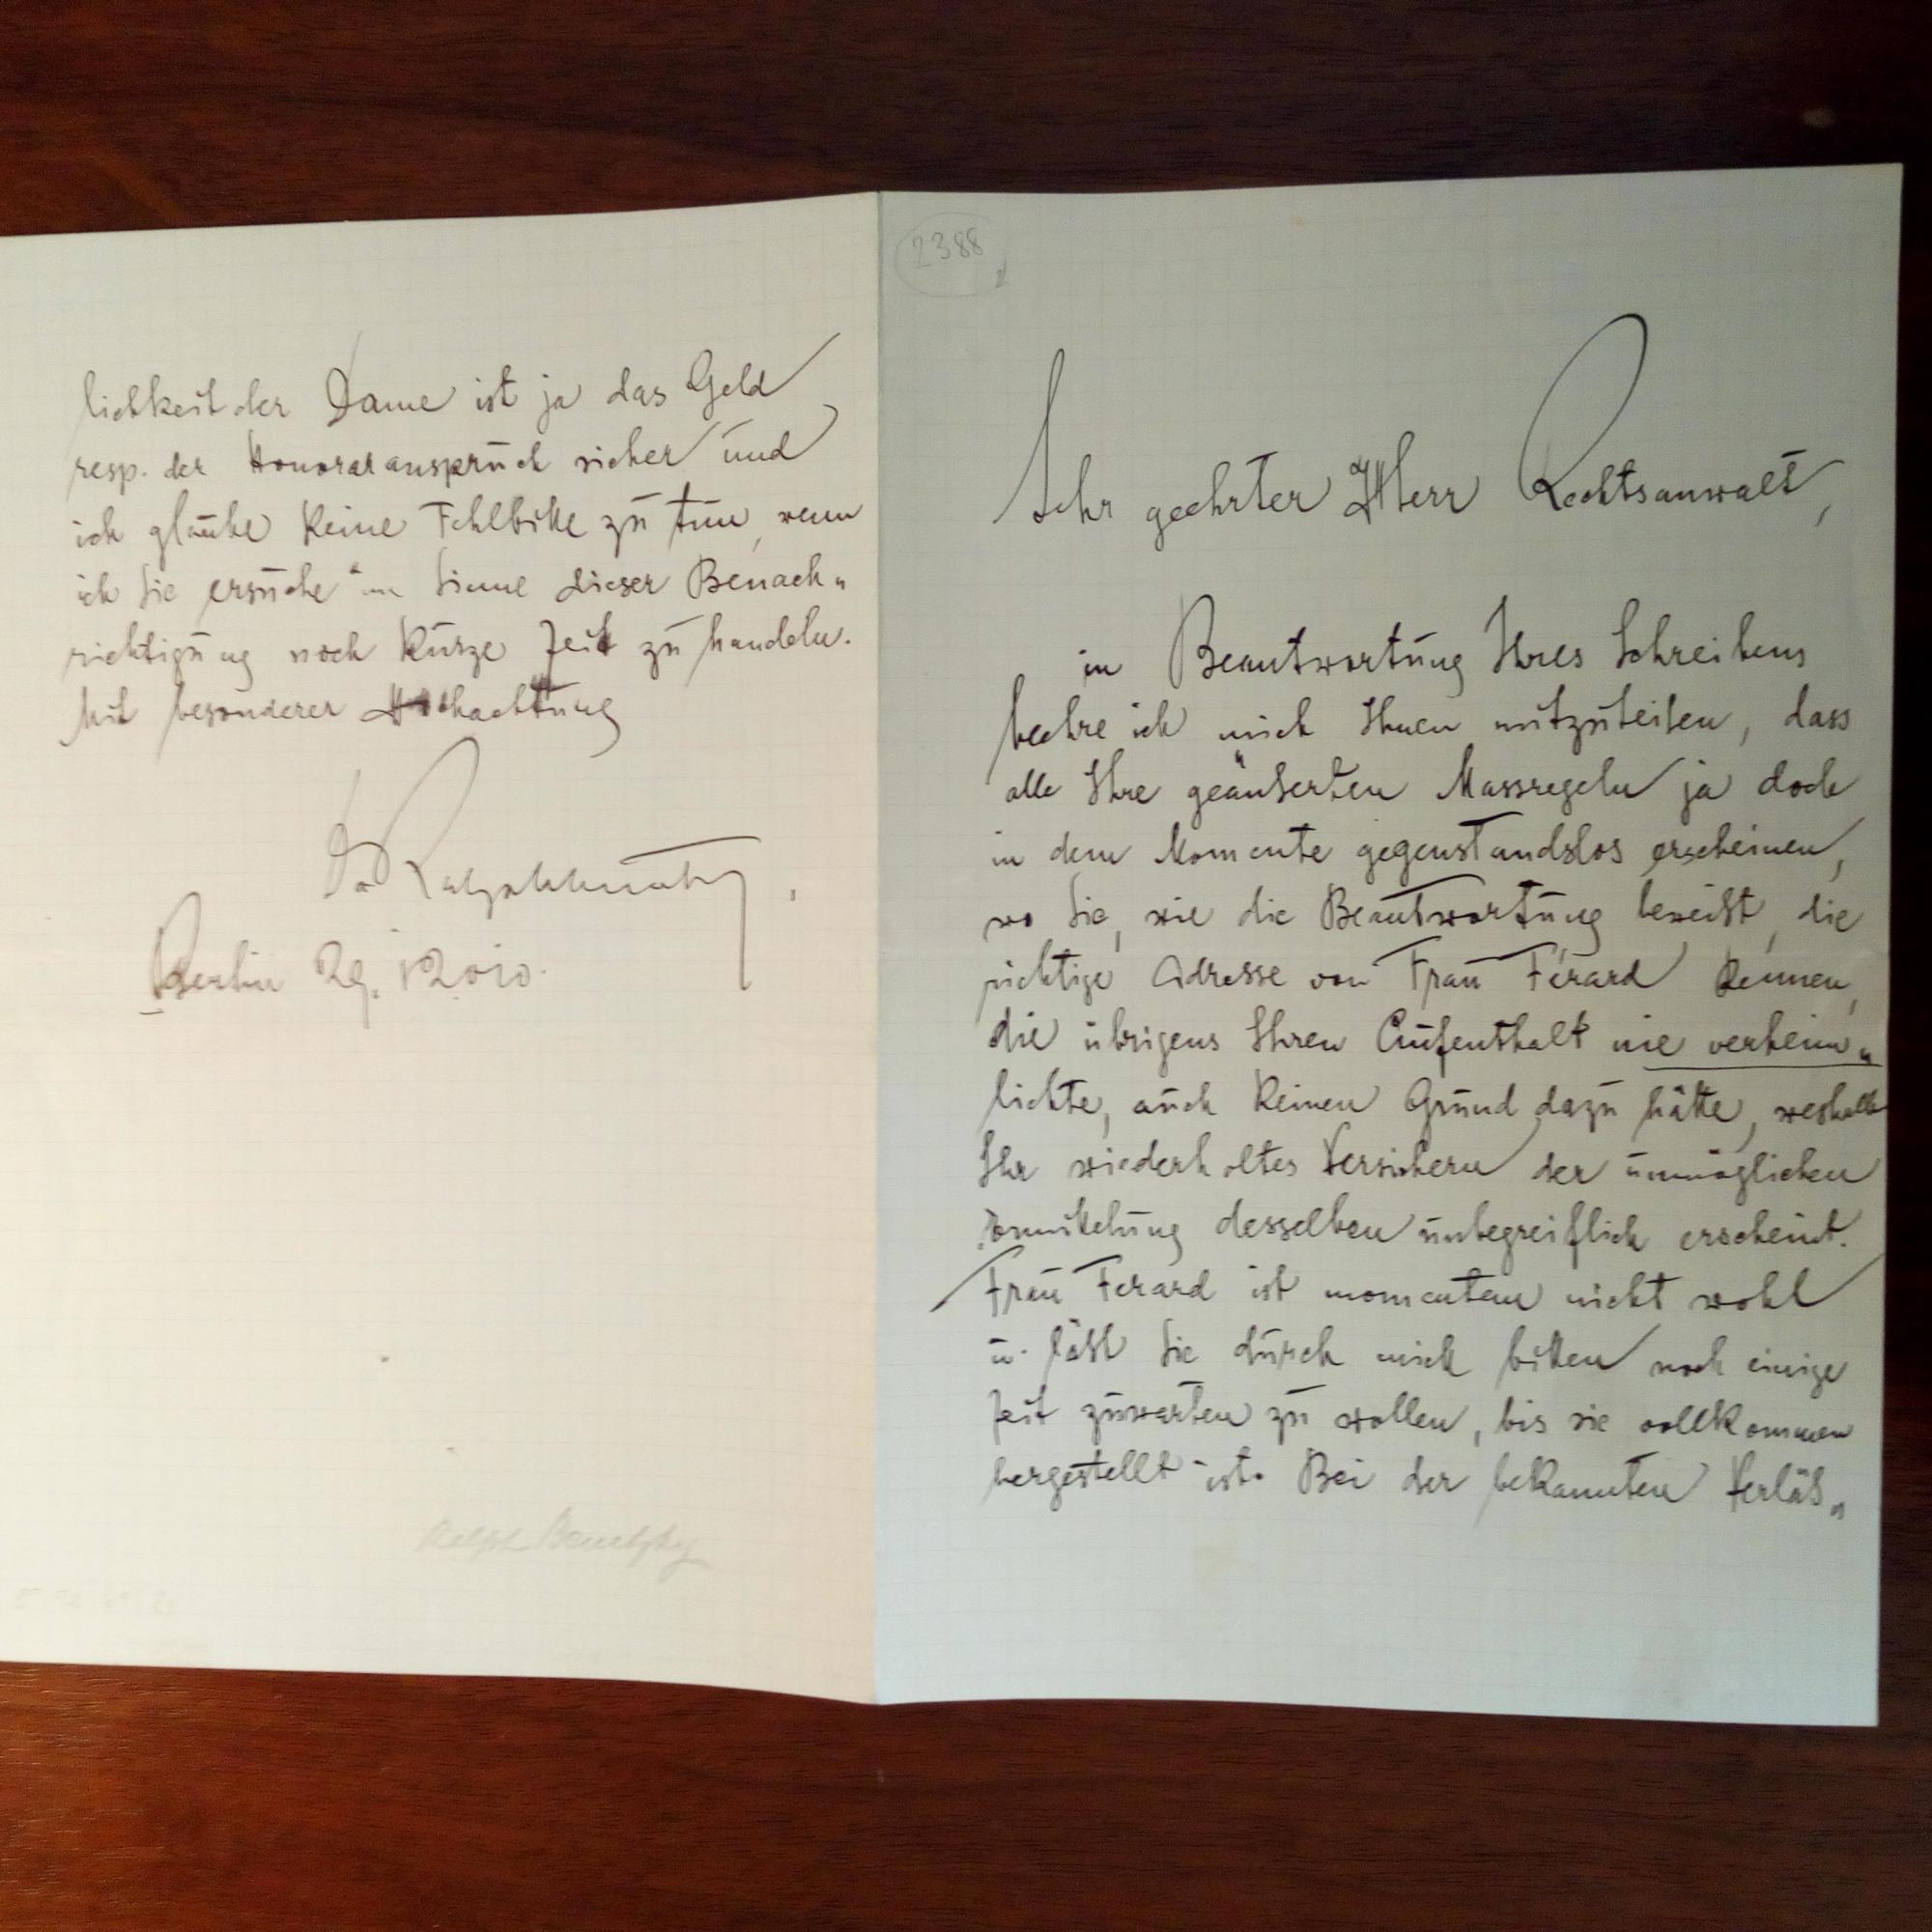 2388
Sehr geehrter Herr Rechtsanwalt,
in Beantwortung Ihres Schreibens
beehre ich mich Ihnen mitzuteilen, dass
alle Ihre geäußerten Massregeln ja doch
in dem Momente gegenstandslos erscheinen,
wo Sie, wie die Beantwortung beweist, die
richtige Adresse von Frau Férard kennen,
die übrigens Ihren Aufenthalt nie verheim„
lichte, auch keinen Grund dazu hätte, weshalb
Ihr wiederholtes Versichern der unmöglichen
Ermittelung desselben unbegreiflich erscheint.
Frau Ferard ist momentan nicht wohl
u. läßt Sie durch mich bitten noch einige
Zeit zuwarten zu wollen, bis sie vollkommen
hergestellt ist. Bei der bekannten Verläß„
lichkeit der Dame ist ja das Geld
resp. der Honoraranspruch sicher und
ich glaube keine Fehlbitte zu tun, wenn
ich Sie ersuche im Sinne dieser Benach„
richtigung noch kurze Zeit zu handeln.
Mit besonderer Hochachtung
Berlin 29.
Ralph Benatzky